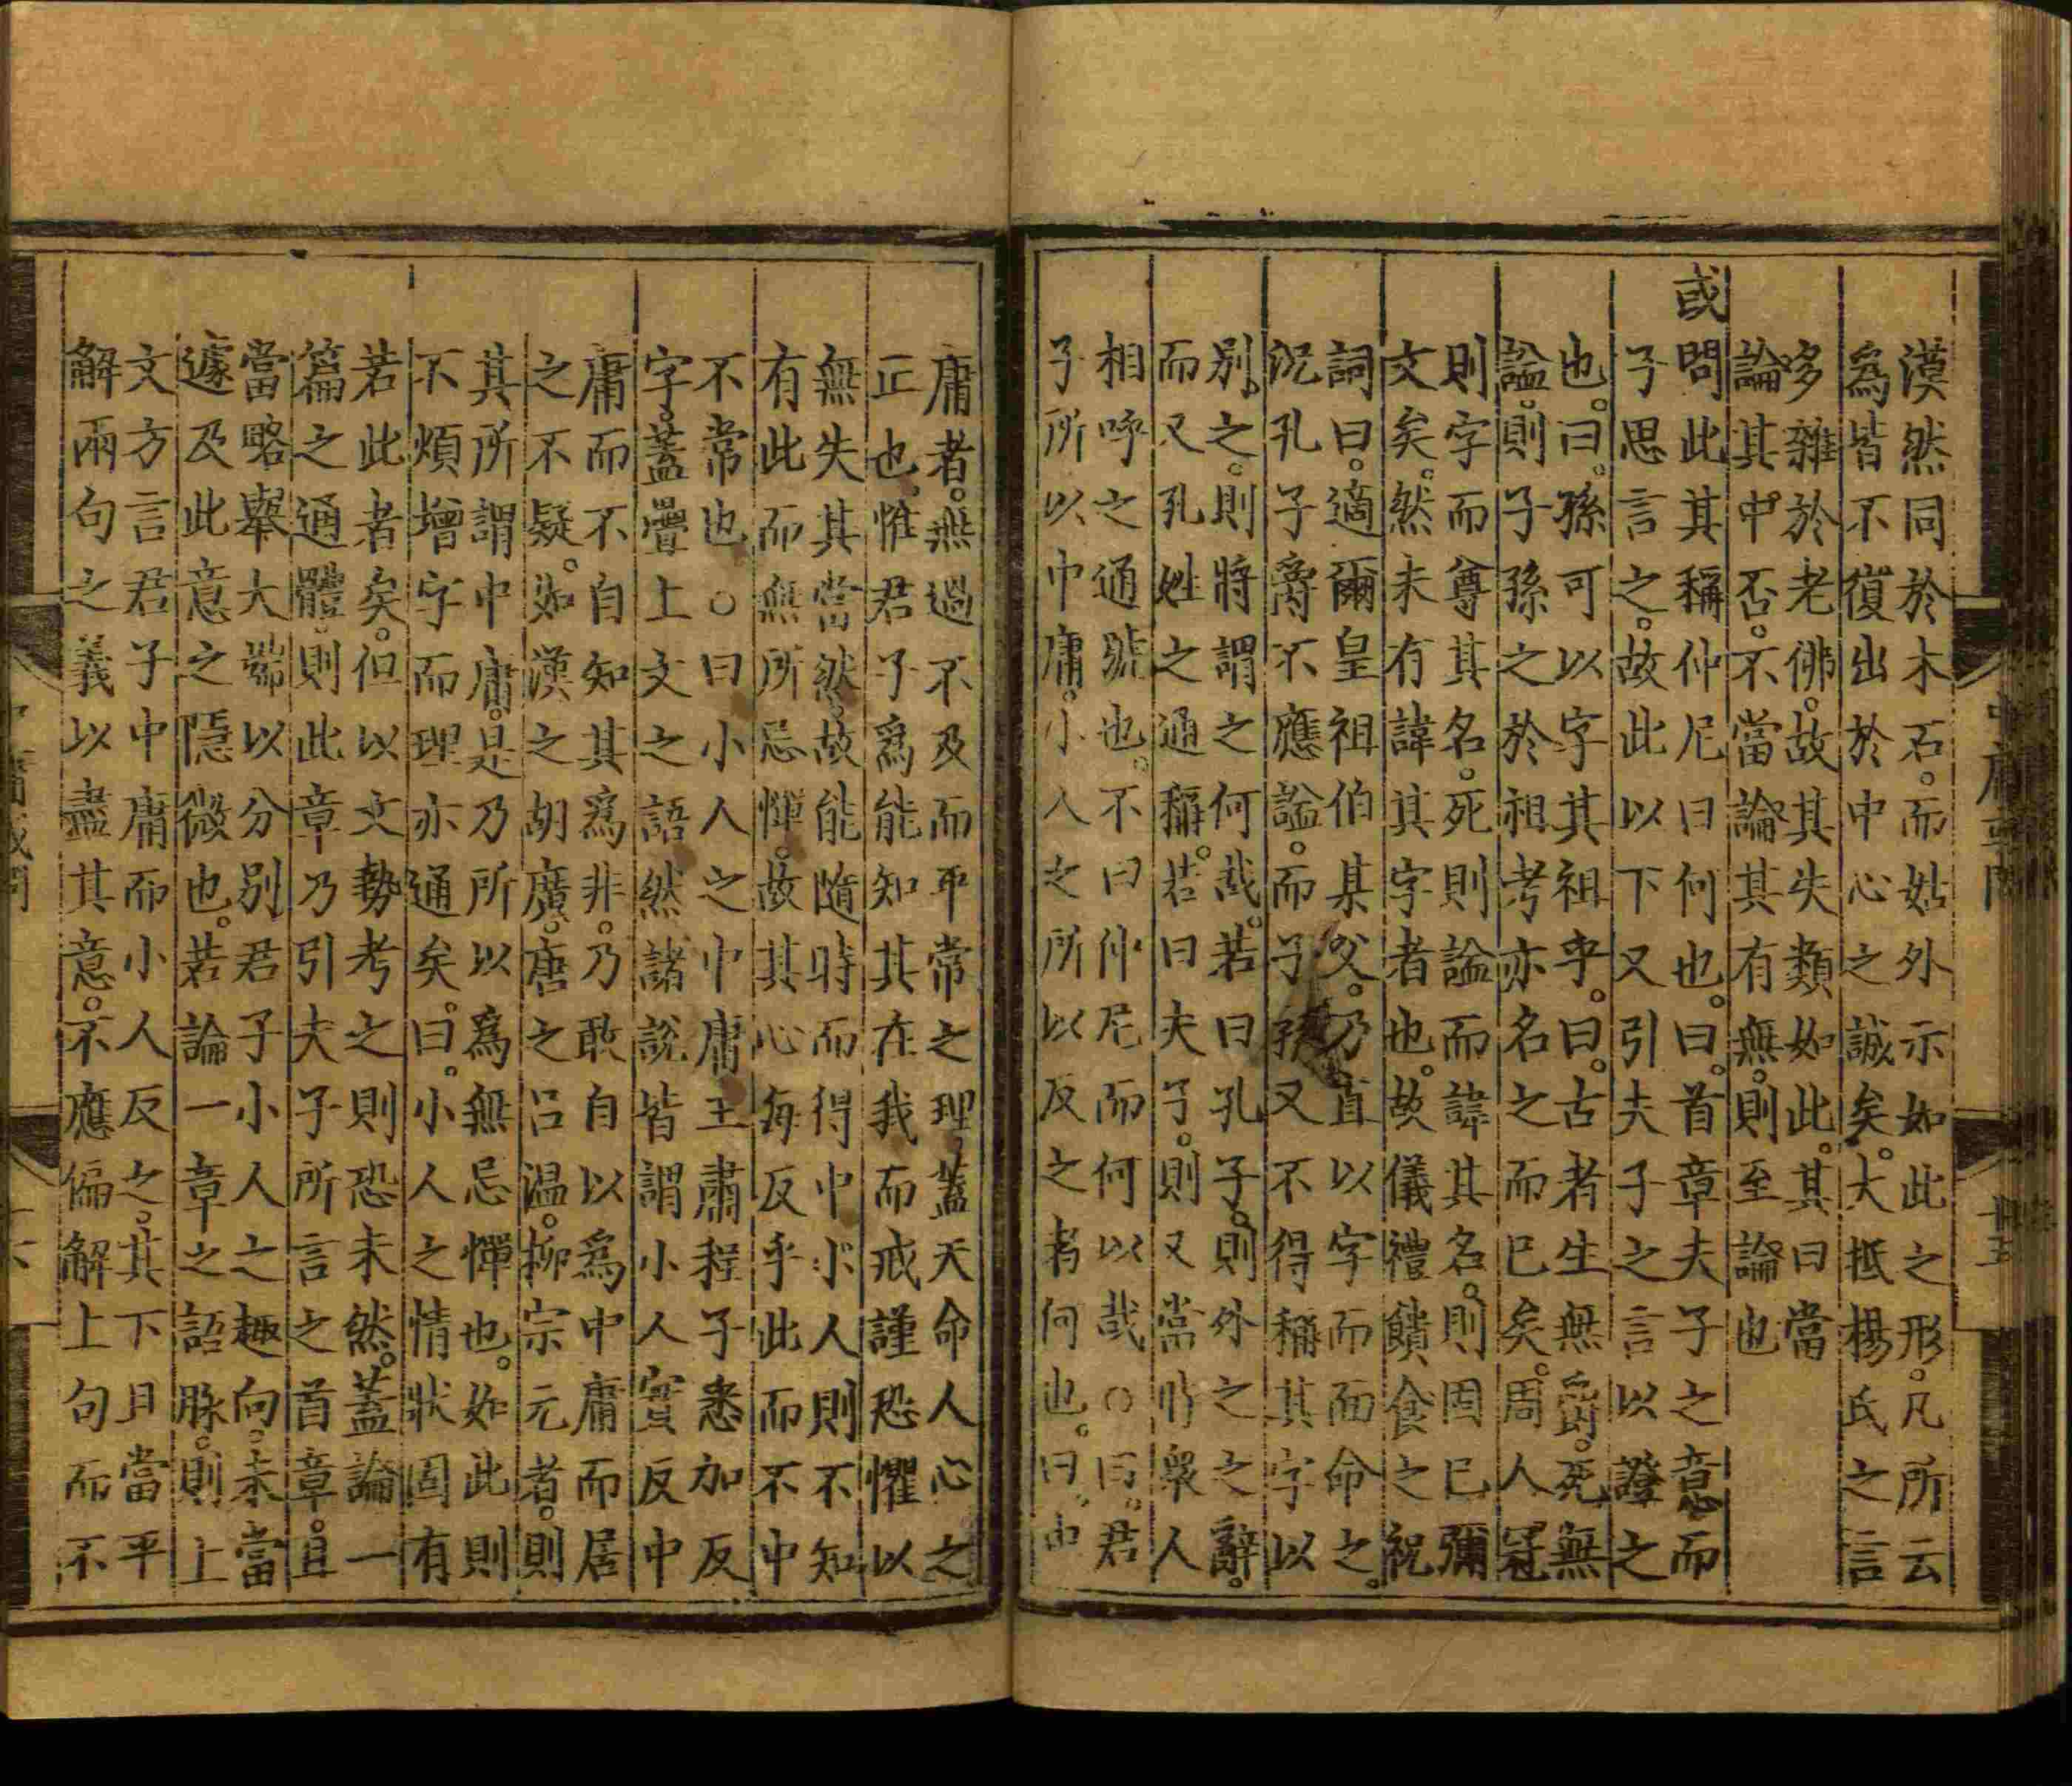 漠然同於木石。而姑外示如此之形。凡所云
爲皆不復出於中心之誠矣。大抵楊氏之言
多雜於老佛。故其失類如此。其曰當
論其中否。不當論其有無。則至論也
或問此其稱仲尼曰何也。曰。首章夫子之意而
子思言之。故此以下又引夫子之言以證之
也。曰。孫可以字其祖乎。曰。古者生無爵。死無
諡。則子孫之於祖考亦名之而已矣。周人冠
則字而尊其名。死則諡而諱其名。則固已彌
文矣。然未有諱其字者也。故儀禮饋食之祝
詞曰。適爾皇祖伯某父。乃直以字而面命之。
況孔子爵不應諡。而子孫又不得稱其字以
別之。則將謂之何哉。若曰孔子。則外之之辭。
而又孔姓之通稱。若曰夫子。則又當時衆人
相呼之通號也。不曰仲尼而何以哉○曰。君
子所以中庸。小人之所以反之者何也。曰。中
庸者。無過不及而平常之理。蓋天命人心之
正也。惟君子爲能知其在我而戒謹恐懼以
無失其當然。故能隨時而得中。小人則不知
有此而無所忌憚。故其心每反乎此而不中
不常也○曰小人之中庸王肅程子悉加反
字。蓋疊上文之語然諸說皆謂小人實反中
庸而不自知其爲非。乃敢自以爲中庸而居
之不疑。如漢之胡廣。唐之呂温。柳宗元者。則
其所謂中庸。是乃所以爲無忌憚也。如此則
不煩增字而理亦通矣。曰。小人之情狀固有
若此者矣。但以文勢考之則恐未然。蓋論一
篇之通體。則此章乃引夫子所言之首章。且
當略舉大端以分別君子小人之趣向。未當
遽及此意之隱微也。若論一章之語脉。則上
文方言君子中庸而小人反之。其下且當平
解兩句之義以盡其意。不應偏解上句而不
中庸或問
十五